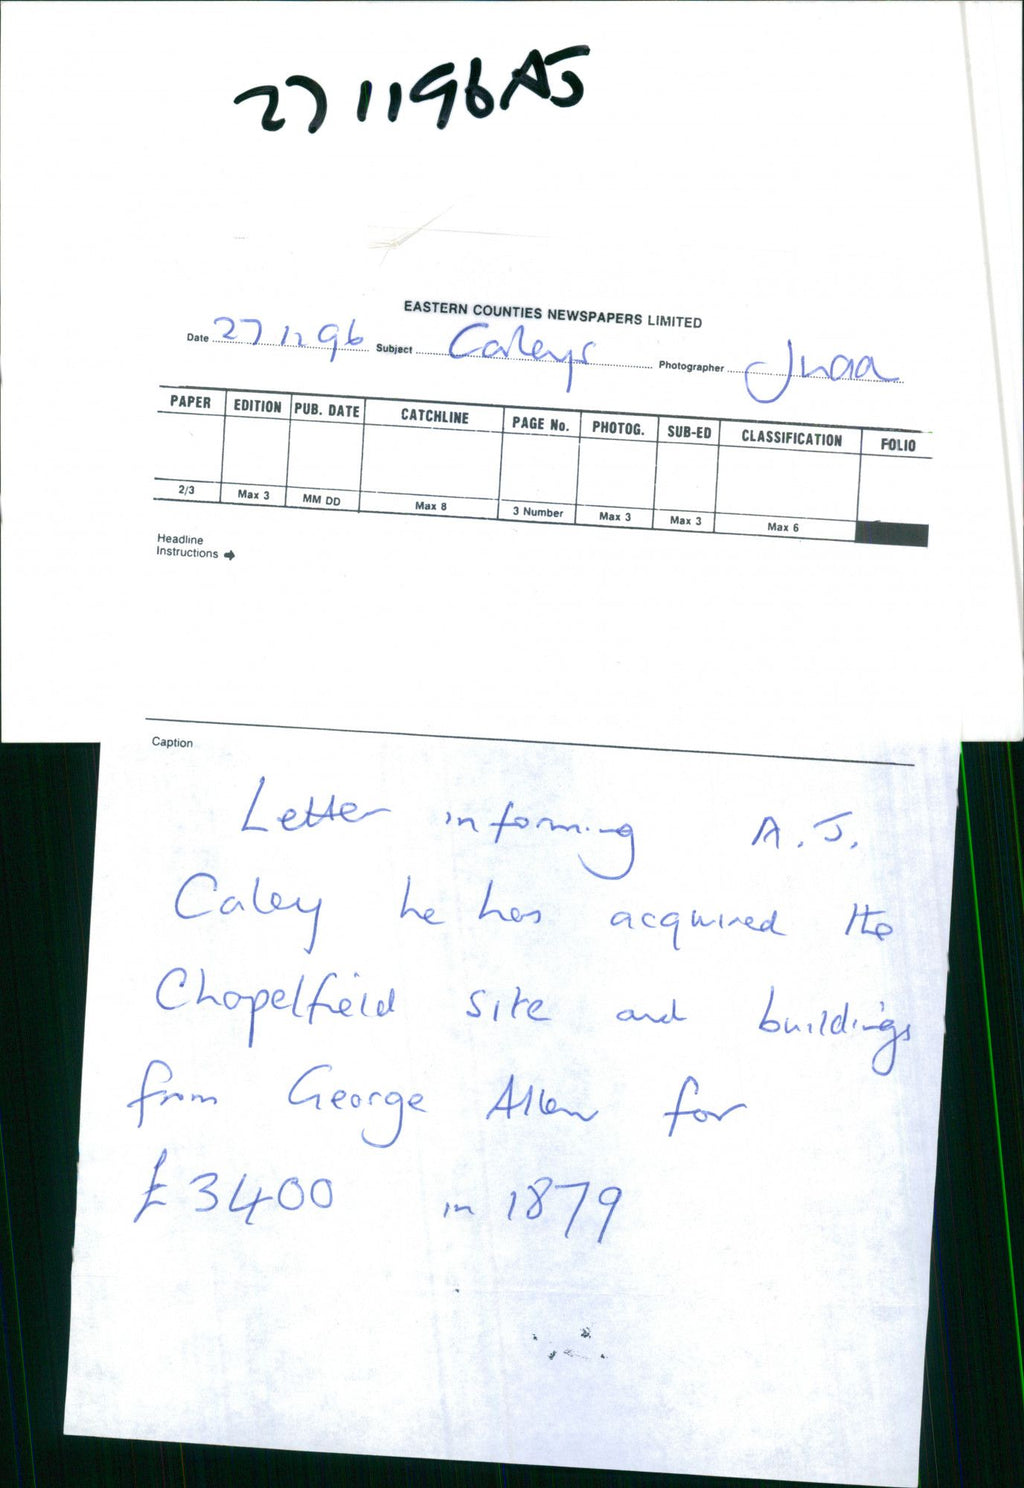 271196AJ
EASTERN COUNTIES NEWSPAPERS LIMITED
Date 27 11 96 Subject Caleys Photographer
PAPER EDITION PUB. DATE CATCHLINE PAGE No. PHOTOG. SUB-ED CLASSIFICATION FOLIO
2/3 Max 3 MM DD Max 8 3 Number Max 3 Max 3 Max 6
Headline
Instructions ➔
Caption
Letter informing A.J.
Caley he has acquired the
Chapelfield site and buildings
from George Allen for
£3400 in 1879